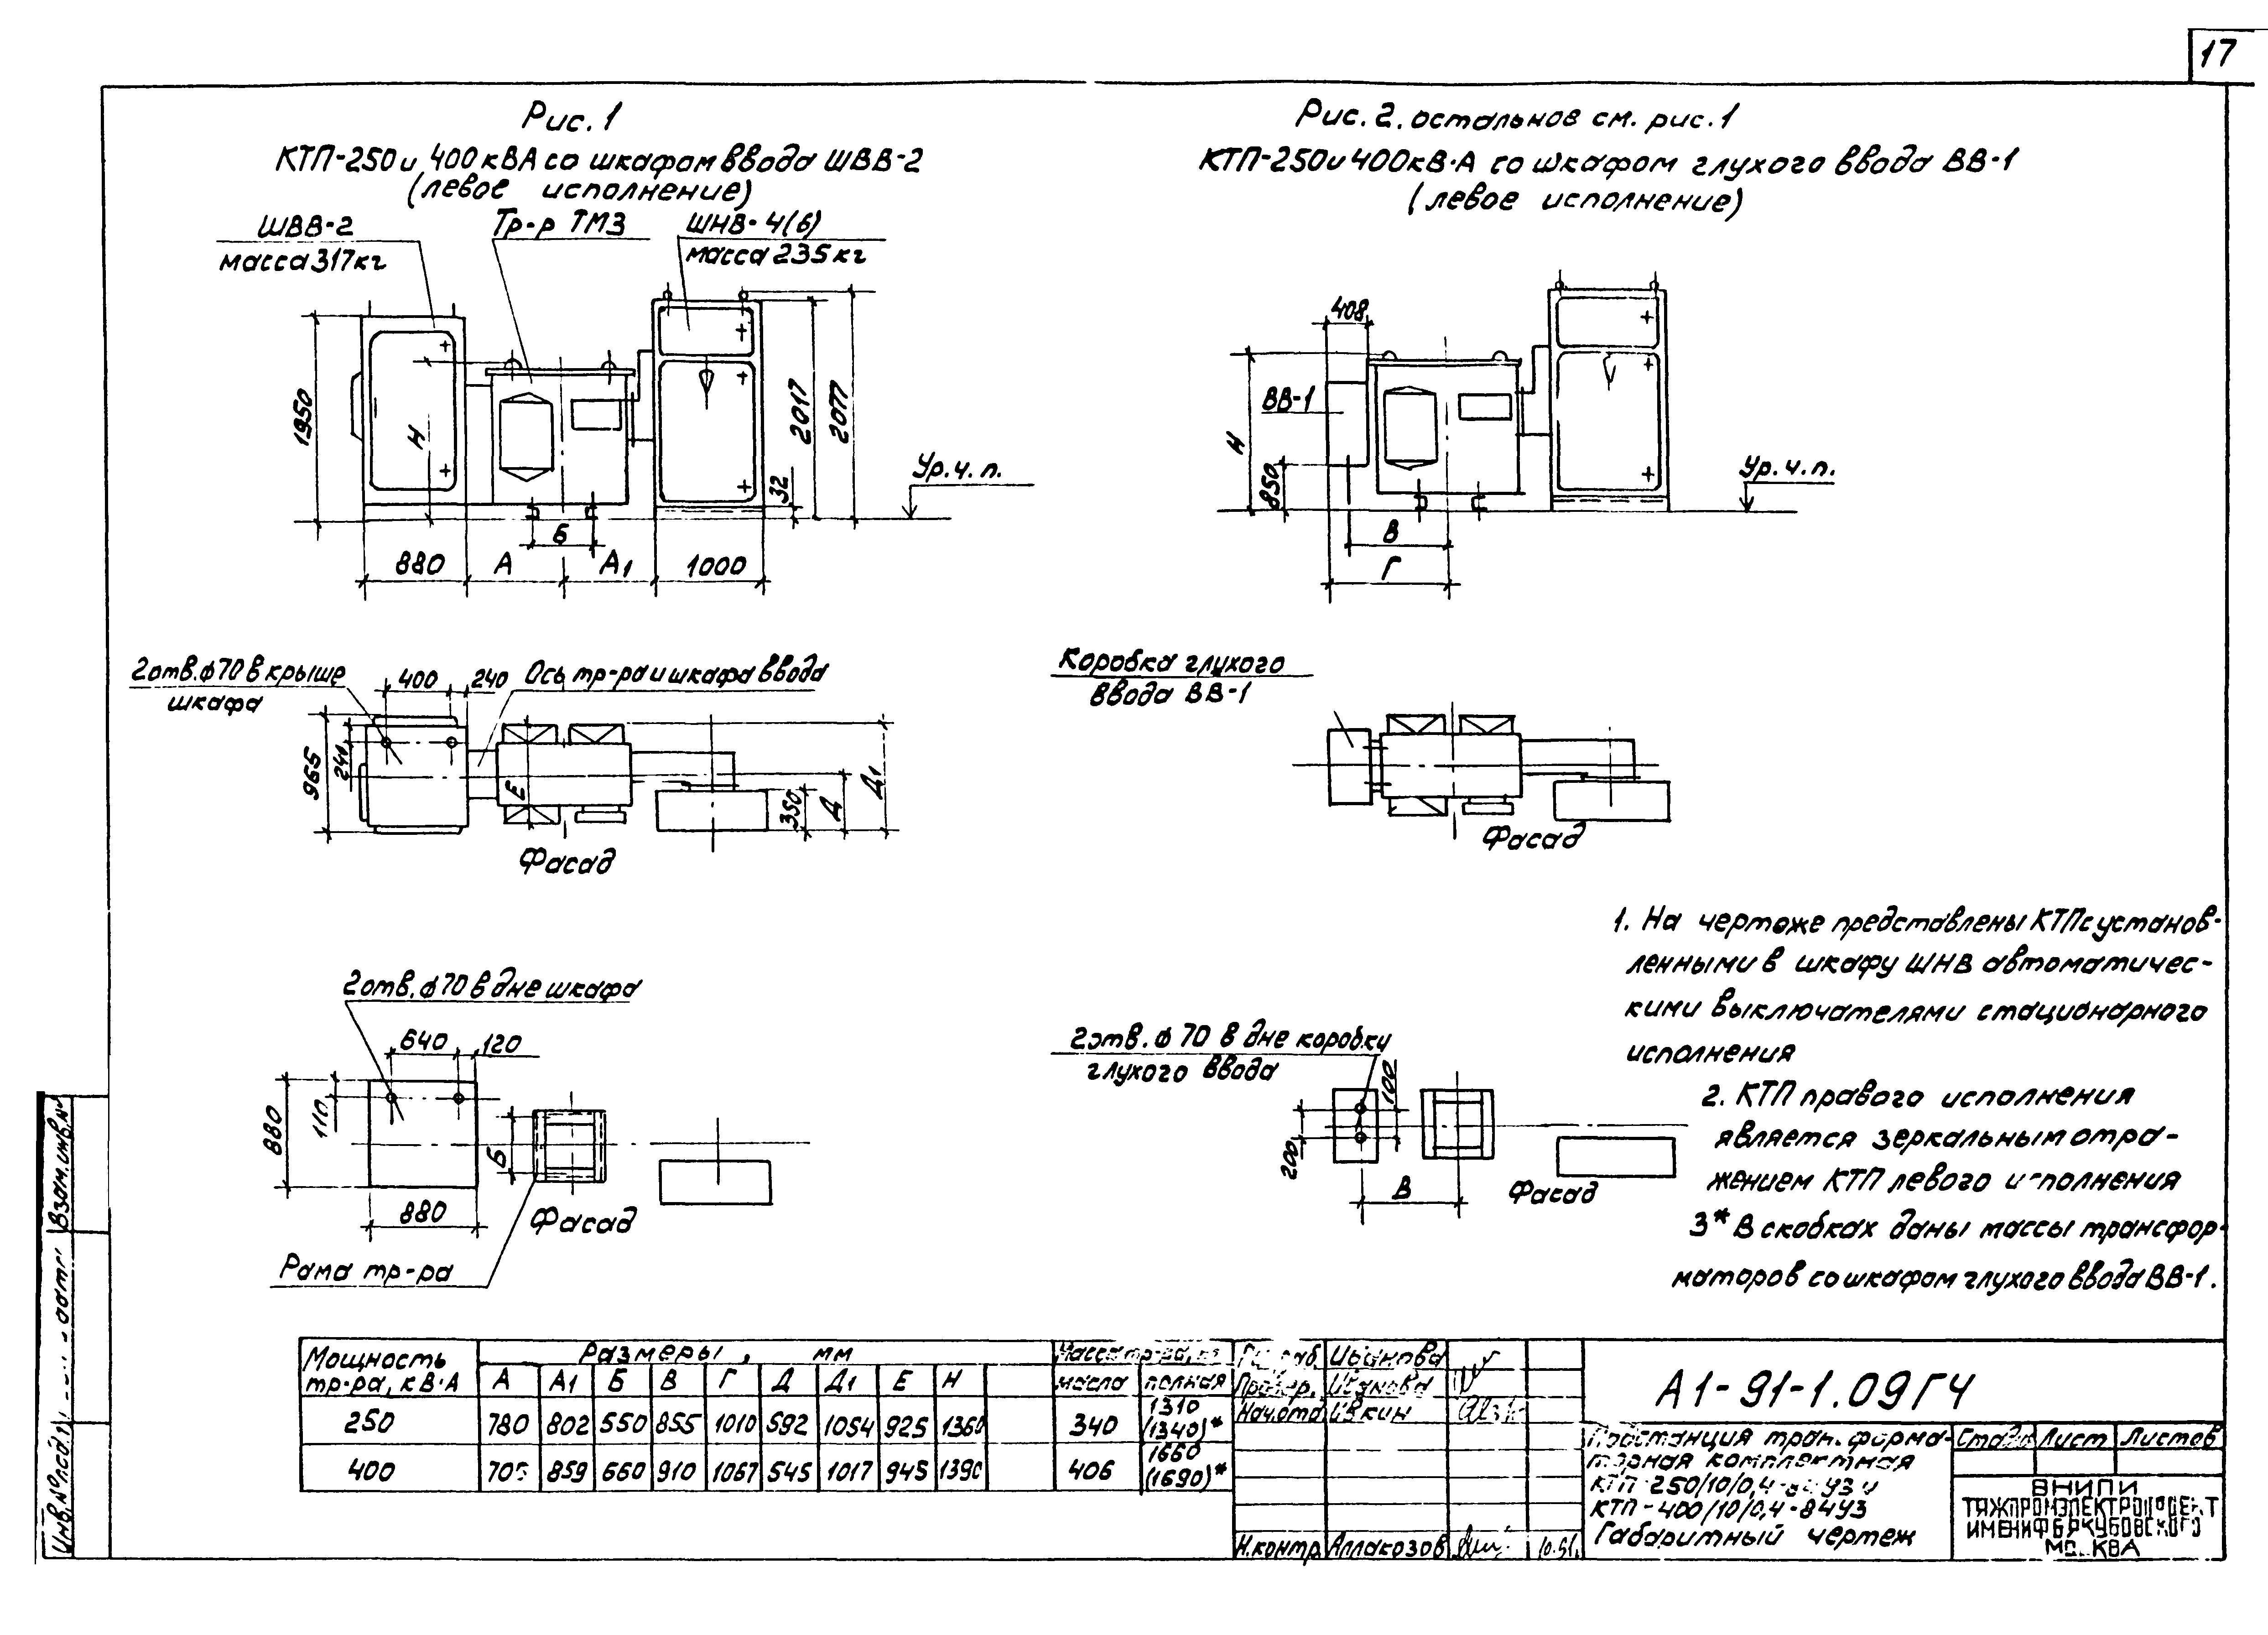 17
Рис. 1
КТП-250 и 400 кВА со шкафом ввода ШВВ-2
(левое исполнение)
ШВВ-2
масса 317 кг
Тр-р ТМЗ
ШНВ-4(6)
масса 235 кг
1950
Н
2017
2077
32
Ур. ч. п.
Б
880
А
А1
1000
Рис. 2. остальное см. рис. 1
КТП-250 и 400 кВ·А со шкафом глухого ввода ВВ-1
(левое исполнение)
408
ВВ-1
Н
850
Ур. ч. п.
В
Г
2 отв. ф 70 в крыше
шкафа
400
240
Ось тр-ра и шкафа ввода
965
240
Е
350
Д
Д1
Фасад
Коробка глухого
ввода ВВ-1
Фасад
2 отв. ф 70 в дне шкафа
640
120
880
110
Б
880
Фасад
Рама тр-ра
2 отв. ф 70 в дне коробки
глухого ввода
100
200
В
Фасад
1. На чертеже представлены КТП с установ-
ленными в шкафу ШНВ автоматичес-
кими выключателями стационарного
исполнения
2. КТП правого исполнения
является зеркальным отра-
жением КТП левого исполнения
3* В скобках даны массы трансфор-
маторов со шкафом глухого ввода ВВ-1.
Мощность тр-ра, кВ·А | Размеры, мм | Масса тр-ра, кг
А | А1 | Б | В | Г | Д | Д1 | Е | Н | масла | полная
250 | 780 | 802 | 550 | 855 | 1010 | 592 | 1054 | 925 | 1360 | 340 | 1310 (1340)*
400 | 705 | 859 | 660 | 910 | 1067 | 545 | 1017 | 945 | 1390 | 406 | 1660 (1690)*
Разраб. Иванова
Провер. Иванова
Нач. отд. Ивкин
Н. контр. Аллакозов 10.91.
А1-91-1.09ГЧ
Подстанция трансформа-
торная комплектная
КТП-250/10/0,4-84У3 и
КТП-400/10/0,4-84У3
Габаритный чертеж
Стадия Лист Листов
ВНИПИ
ТЯЖПРОМЭЛЕКТРОПРОЕКТ
ИМЕНИ Ф.Б.ЯКУБОВСКОГО
МОСКВА
Взам. инв. №
Инв. № подл.